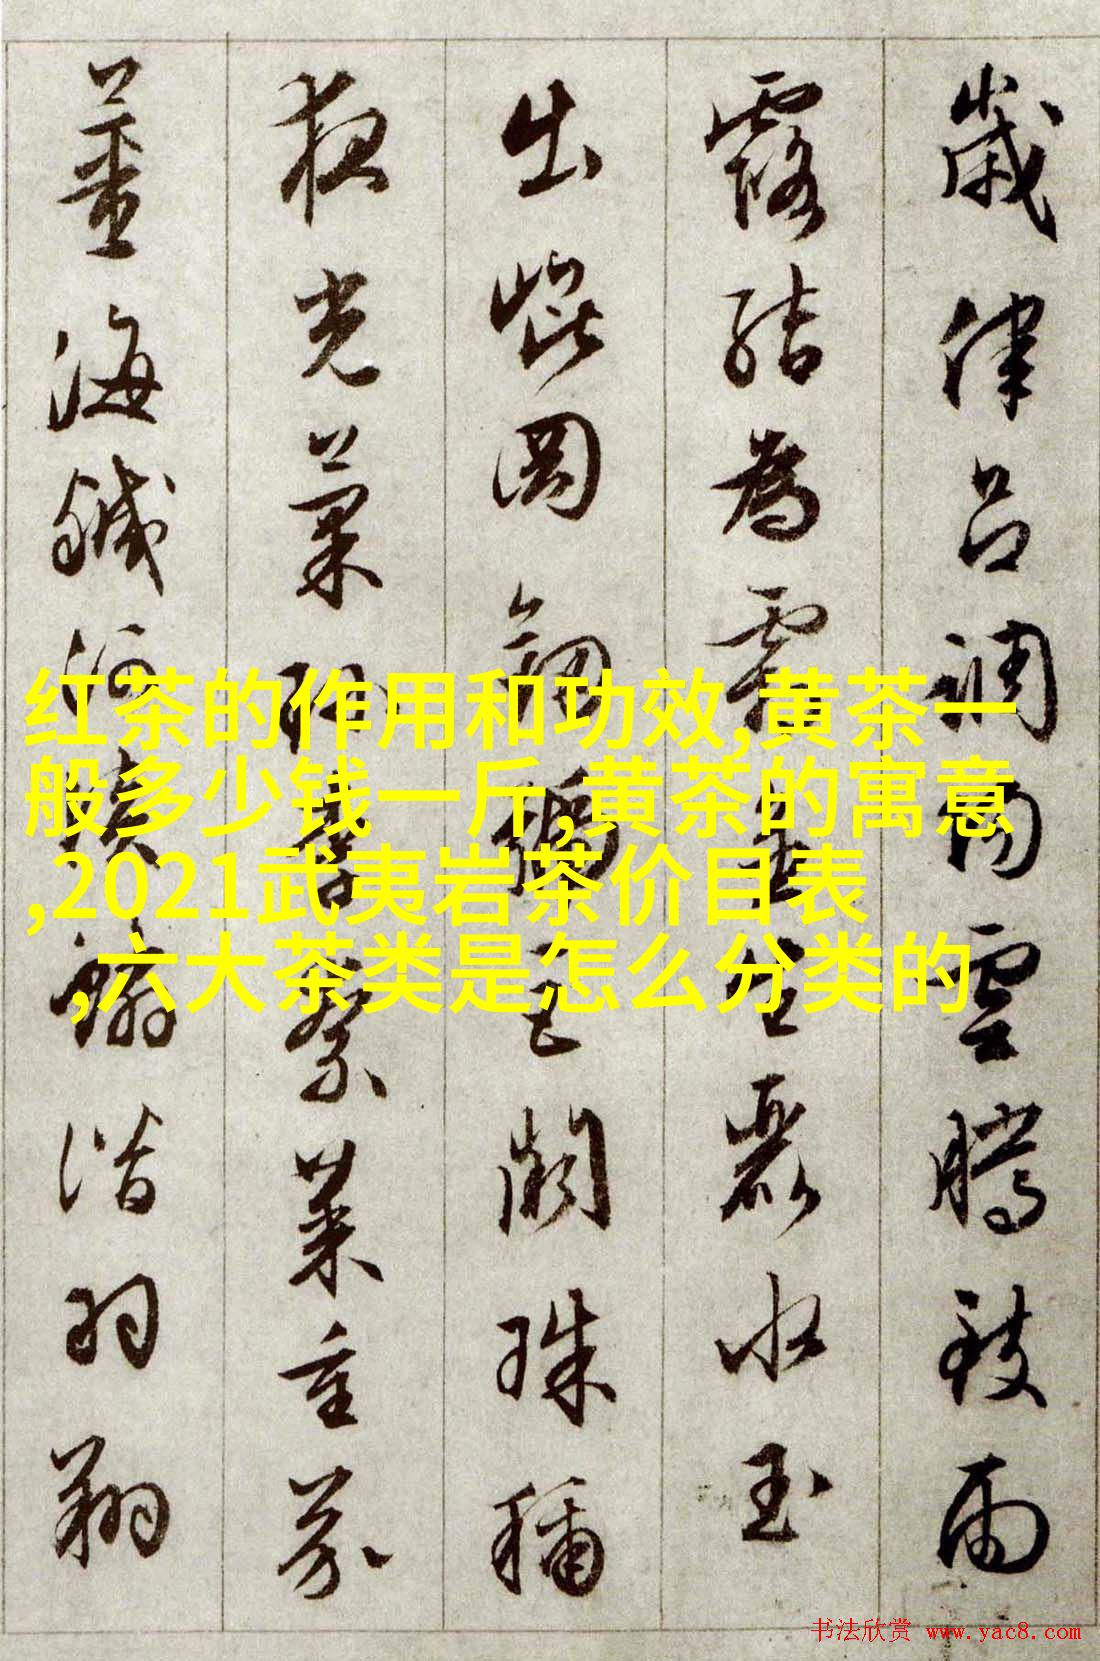 歲律呂調陽雲騰致雨
露結為霜金生麗水玉
出崐岡劍號巨闕珠稱
夜光菓珍李柰菜重芥
薑海鹹河淡鱗潛羽翔
红茶的作用和功效,黄茶一
般多少钱一斤,黄茶的寓意
,2021武夷岩茶价目表
,六大茶类是怎么分类的
书法欣赏 www.yac8.com